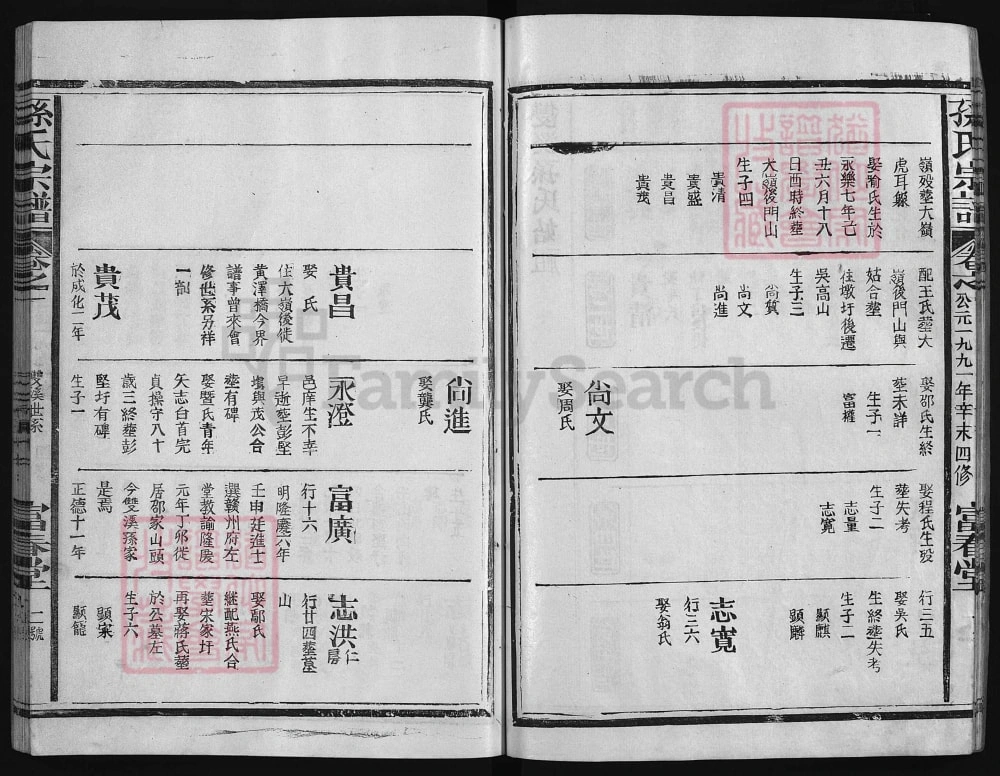 孫氏宗譜
卷之一
公元一九九一年辛未四修
富春堂
嶺歿塟大嶺
虎耳縣
娶喻氏生於
永樂七年己
丑六月十八
日酉時終塟
大嶺後門山
生子四
貴清
貴盛
貴昌
貴茂
配王氏塟大
嶺後門山與
姑合塟
住墩圩後遷
吳高山
生子三
尚質
尚文
尚進
娶邵氏生終
塟未詳
生子一
富權
尚文
娶周氏
娶程氏生歿
塟失考
生子二
志量
志寬
行三五
娶吳氏
生終塟失考
生子二
顯麒
顯麟
志寬
行三六
娶翁氏
貴昌
娶 氏
住大嶺後徙
黃澤橋今界
譜事曾來會
修世系另祥
一韶
貴茂
於成化二年
尚進
娶龔氏
永澄
邑庠生不幸
早逝塟彭堅
壋與茂公合
塟有碑
娶暨氏青年
矢志白首完
貞操守八十
歲三終塟彭
堅圩有碑
生子一
富廣
行十六
明隆慶六年
壬申廷進士
選贛州府左
堂教諭隆慶
元年丁卯徙
居邵家山頭
今雙溪孫家
是焉
正德十一年
志洪仁房
行廿四塟墓
山
娶鄢氏
繼配燕氏合
塟宋家圩
再娶蔣氏塟
於公墓左
生子六
顯宷
顯龍
孫氏宗譜
卷之一
雙溪世系
富春堂
FamilySearch